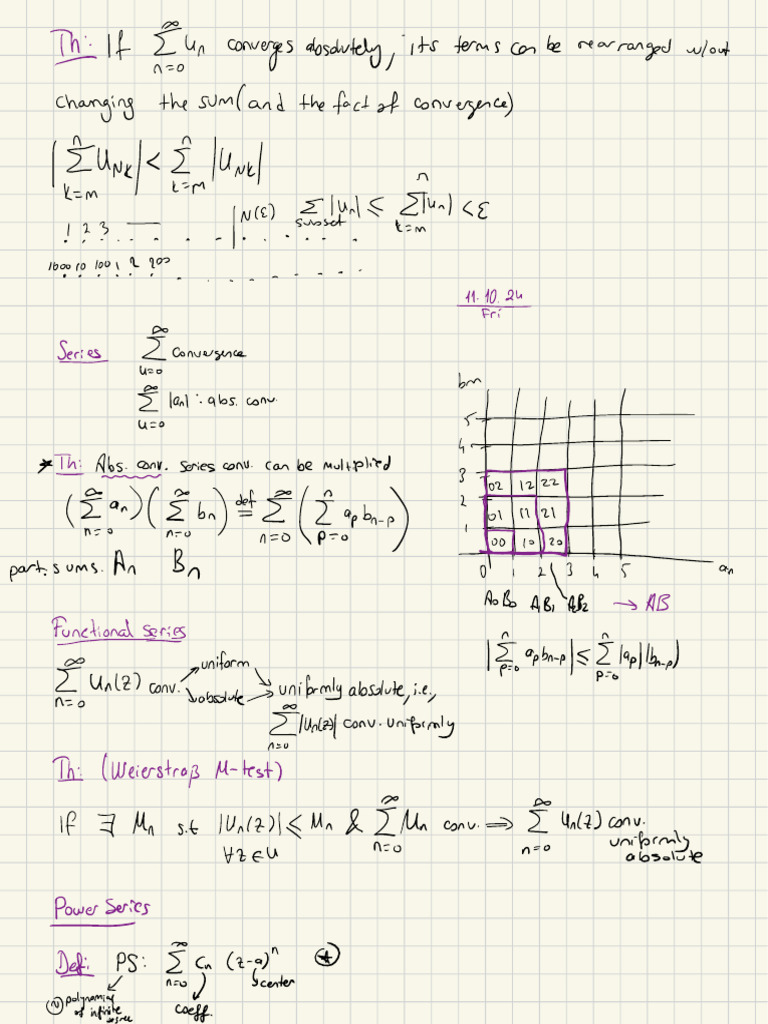 Th: If ∑_{n=0}^{∞} u_n converges absolutely, its terms can be rearranged w/out
changing the sum (and the fact of convergence)
|∑_{k=m}^{n} u_{Nk}| < ∑_{k=m}^{n} |u_{Nk}|
N(ε) ∑_{subset} |u_n| ≤ ∑_{k=m}^{n} |u_n| < ε
1 2 3
1000 10 100 1 2 200
11.10.24
Fri
Series ∑_{u=0}^{∞} convergence
∑_{u=0}^{∞} |a_n| : abs. conv.
* Th: Abs. conv. series conv. can be multiplied
(∑_{n=0}^{∞} a_n)(∑_{n=0}^{∞} b_n) def= ∑_{n=0}^{∞} (∑_{p=0}^{n} a_p b_{n-p})
part. sums. A_n B_n
b_m
5
4
3
02 12 22
2
01 11 21
1
00 10 20
0 1 2 3 4 5 a_n
A_0B_0 AB_1 AB_2 → AB
|∑_{p=0}^{n} a_p b_{n-p}| ≤ ∑_{p=0}^{n} |a_p| |b_{n-p}|
Functional series
∑_{n=0}^{∞} u_n(z) conv. uniform
absolute → uniformly absolute, i.e.,
∑_{n=0}^{∞} |u_n(z)| conv. uniformly
Th: (Weierstraß M-test)
If ∃ M_n s.t |u_n(z)| ≤ M_n & ∑_{n=0}^{∞} M_n conv. ⇒ ∑_{n=0}^{∞} u_n(z) conv.
∀z∈U uniformly
absolute
Power Series
Def: PS: ∑_{n=0}^{∞} c_n (z-a)^n (*)
center
(~) polynomial
of infinite
degree
coeff.